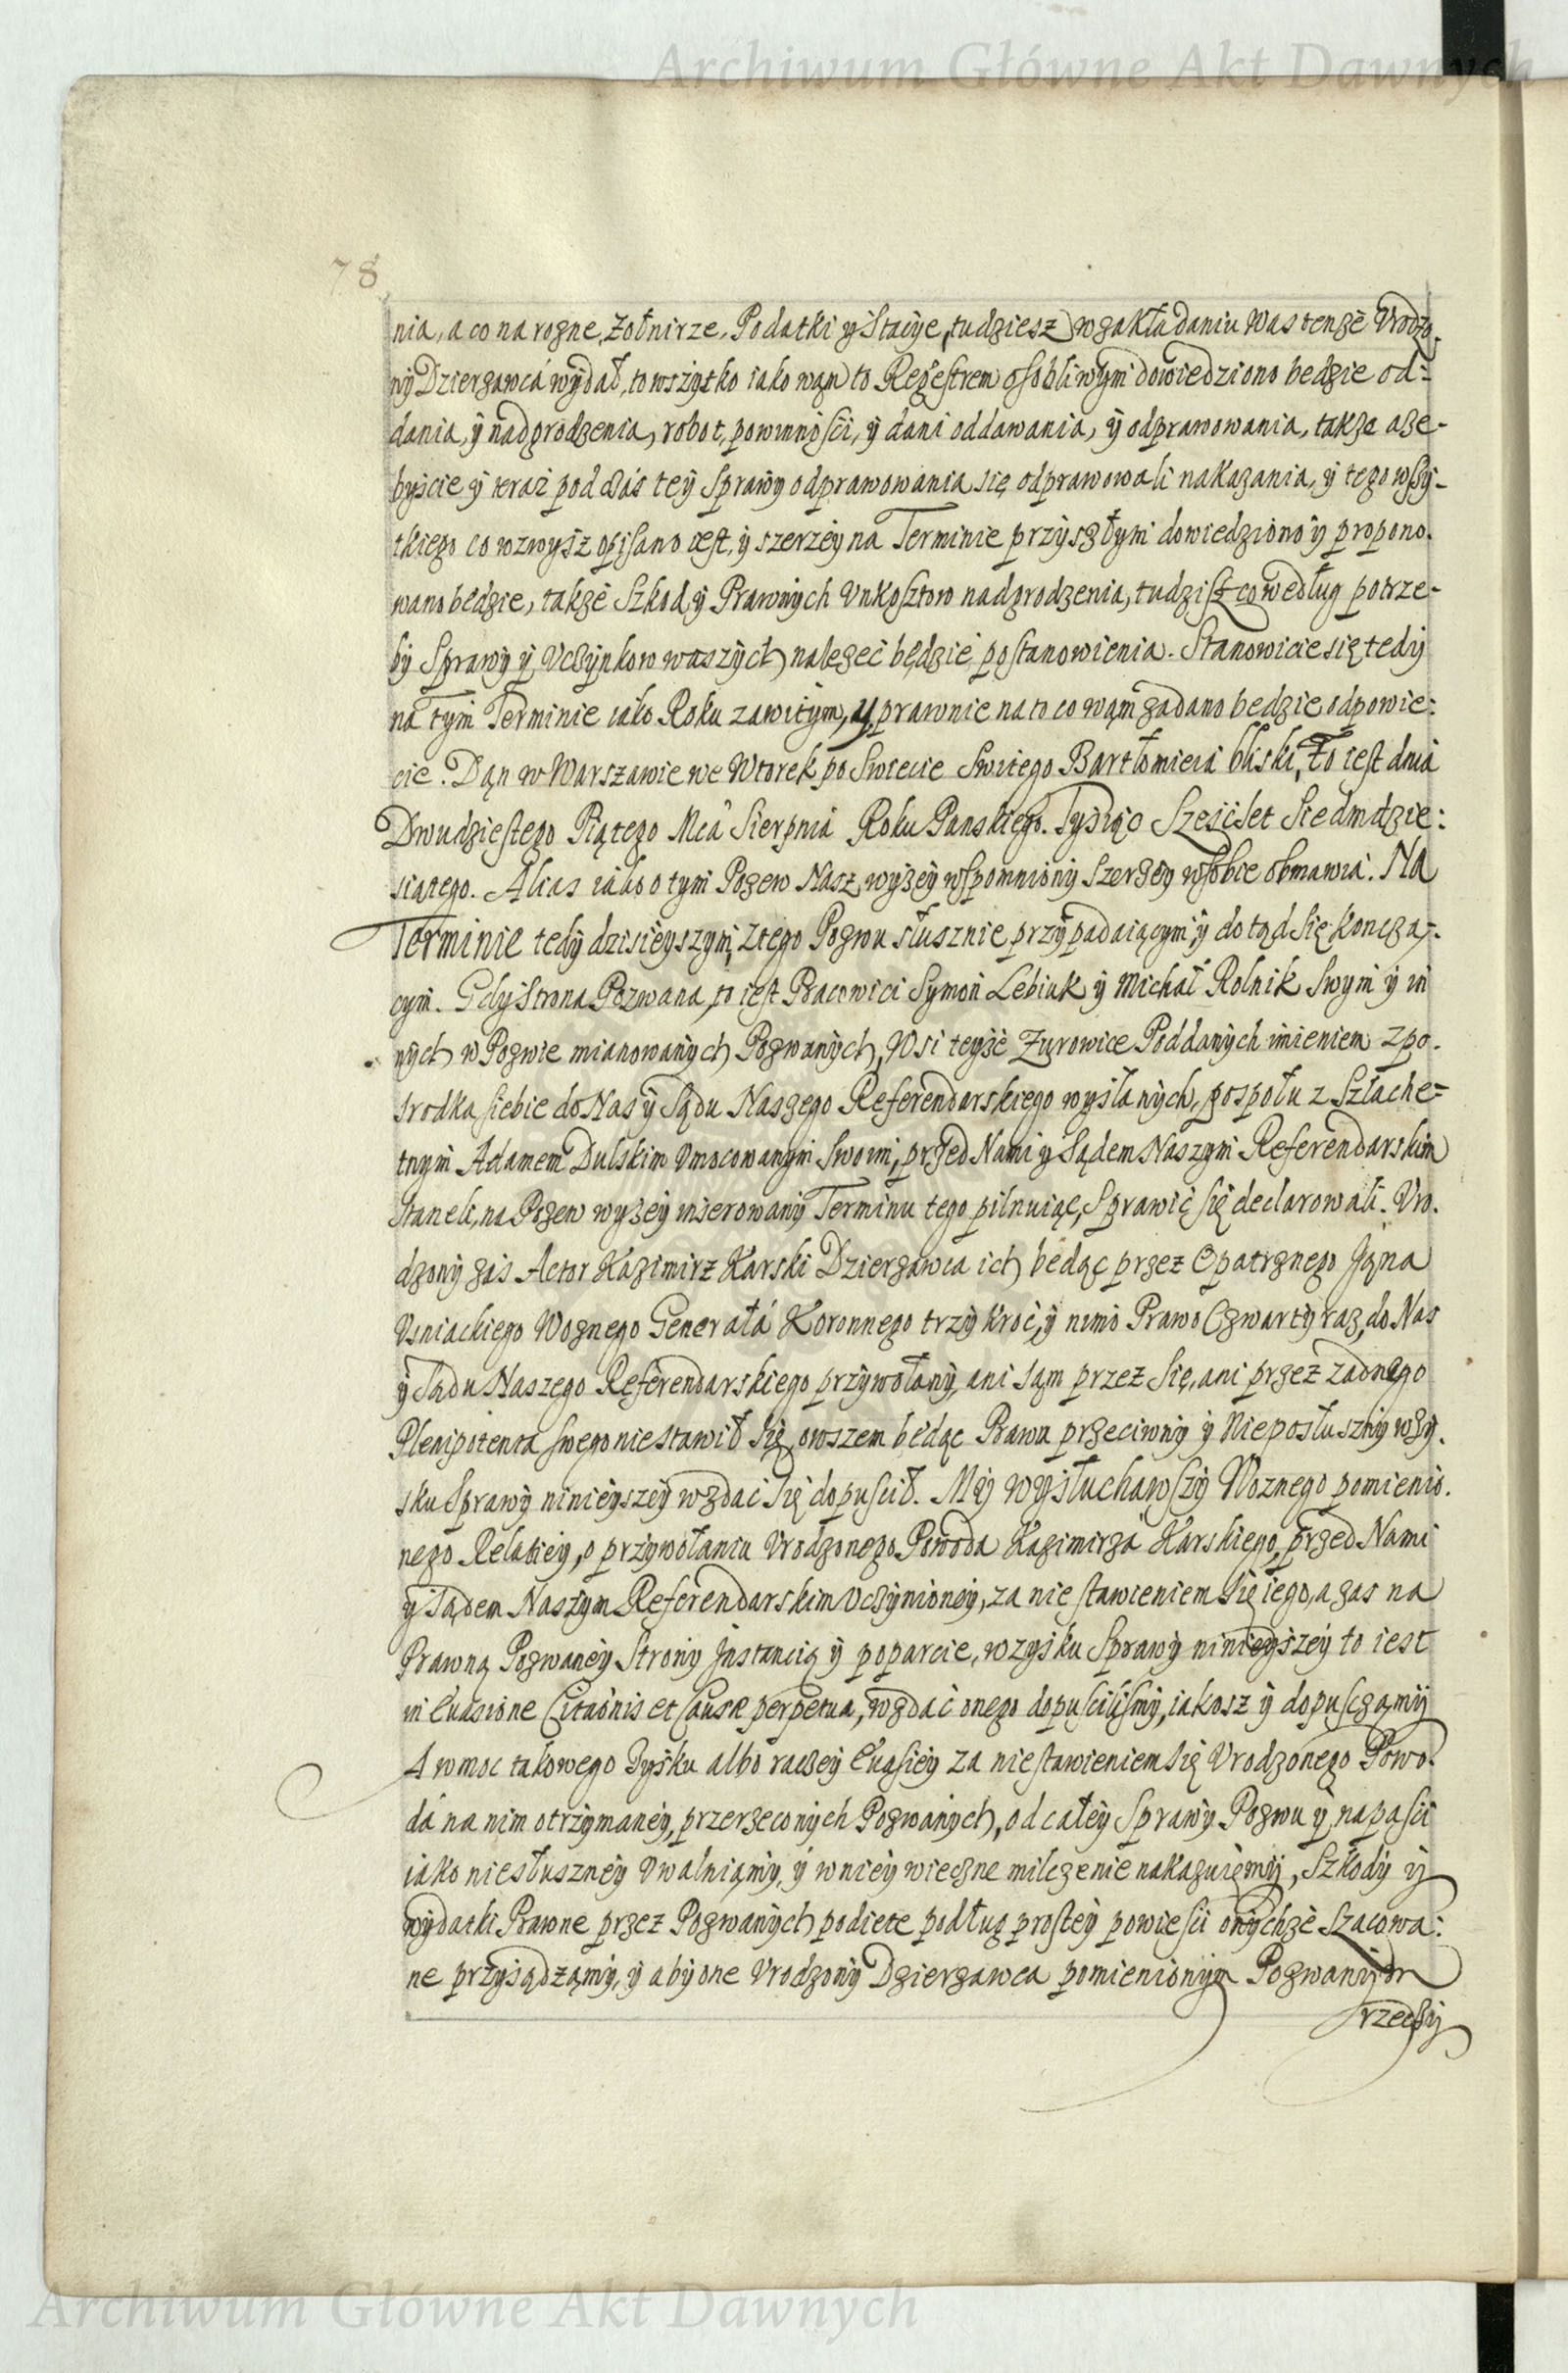 Archiwum Główne Akt Dawnych
78
nia, a co na rozne Zołnirze, Podatki y Stacye, tudziesz w zakładaniu was tenze Vrodzo.
ny Dzierzawca wydał, to wszytko iako wąm to Regestrem osobliwym dowiedziono bedzie od=
dania, y nadgrodzenia, robot, powinnosci, y dani oddawania, y odprawowania, takze aze-
byscie y teraz pod czas tey Sprawy odprawowania się odprawowali nakazania, y tego wszy-
tkiego co wzwysz opisano iest, y szerzey na Terminie przyszłym dowiedziono y propono.
wano bedzie, takze Szkod y Prawnych Vnkosztow nadgrodzenia, tudzisz co według potrze-
by Sprawy y Vczynkow waszych nalezeć będzie postanowienia. Stanowicie się tedy
na tym Terminie iako Roku zawitym, y prawnie na to co wąm zadano bedzie odpowie:
cie. Dąn w Warszawie we Wtorek po Swiecie Swiętego Bartłomieia bliski, To iest dnia
Dwudziestego Piątego Mca Sierpnia Roku Panskiego. Tysiąc Szescset Siedmdzie:
siątego. Alias iako o tym Pozew Nasz wyzey wspomniony szerzey w sobie obmawia. Na
Terminie tedy dzisieyszym, z tego Pozwu słusznie przypadaiącym, y dotąd się konczą-
cym. Gdy Strona Pozwana, to iest Pracowici Symon Lebiuk y Michał Rolnik Swym y in
nych w Pozwie mianowanych Pozwanych, Wsi teyze Zurowice Poddanych imieniem z po.
srodka siebie do Nas y Sądu Naszego Referendarskiego wysłanych, pospołu z Szlache=
tnym Adamem Dulskim Vmocowanym Swoim, przed Nami y Sądem Naszym Referendarskim
Staneli, na Pozew wyzey inserowany Terminu tego pilnuiąc, Sprawić się declarowali. Vro.
dzony zas Actor Kazimirz Karski Dzierzawca ich bedąc przez Opatrznego Jąna
Vsniackiego Woznego Generała Koronnego trzy kroć, y nimo Prawo Czwarty raz do Nas
y Sądu Naszego Referendarskiego przywołany, ani sąm przez się, ani przez zadnego
Plenipotenta swego nie stawił się, owszem bedąc Prawu przeciwny y Nieposłuszny w zy.
sku Sprawy ninieyszey wzdać się dopuscił. My wysłuchawszy Woznego pomienio.
nego Relatiey, o przywołaniu Vrodzonego Powoda Kazimirza Karskiego, przed Nami
y Sądem Naszym Referendarskim Vczynioney, za nie stawieniem się iego, a zas na
Prawną Pozwaney Strony Jnstancią y poparcie, w zysku Sprawy ninieyszey to iest
in Euasione Citationis et Causæ perpetua, wzdać onego dopuscilismy, iakosz y dopuszczamy
A w moc takowego Zysku albo raczey Euasiey za niestawieniem się Vrodzonego Powo.
da na nim otrzymaney, przerzeconych Pozwanych, od całey Sprawy Pozwu y napasci
iako niesłuszney Vwalniamy, y w niey wieczne milczenie nakazuięmy, Szkody y
wydatki Prawne przez Pozwanych podiete podług prostey powiesci onychze Szacowa:
ne przysądzamy, y aby one Vrodzony Dzierzawca pomienionym Pozwanym
rzeczy
Archiwum Główne Akt Dawnych